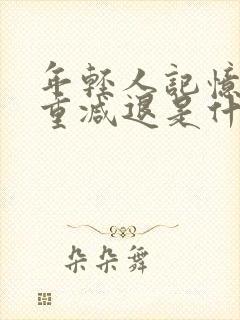 年轻人記憶
重减退是什
朵朵舞